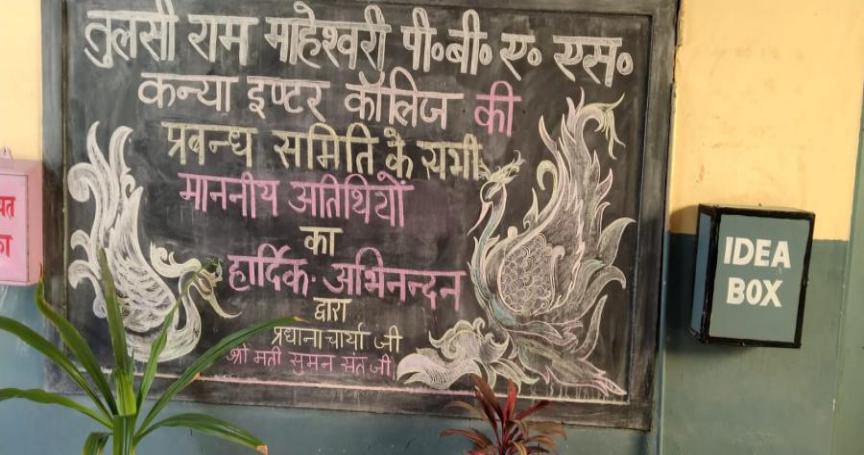 तुलसी राम माहेश्वरी पी॰बी॰ ए॰ एस॰
कन्या इण्टर कॉलिज की
प्रबन्ध समिति के सभी
माननीय अतिथियों
का
हार्दिक अभिनन्दन
द्वारा
प्रधानाचार्या जी
श्री मती सुमन संत जी
IDEA
BOX